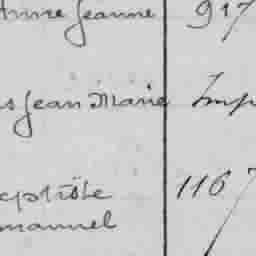 Anne Jeanne 917
s Jean Marie Imp
eptiste 1167
manuel